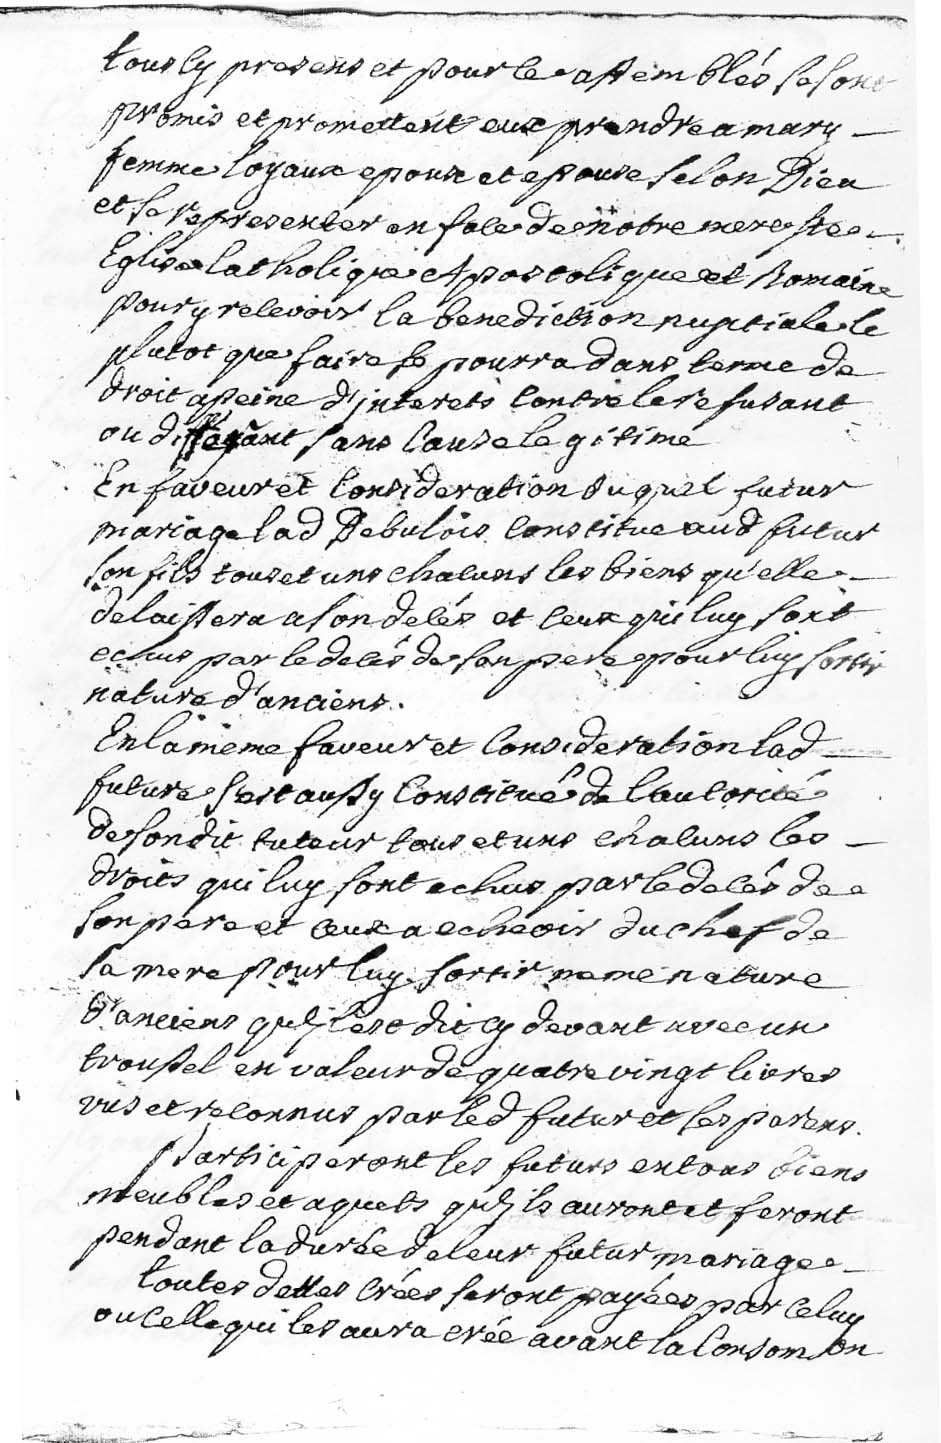 tous cy presens et pour ce assemblés se sont
promis et promettent eux prendre a mary
femme loyaux epoux et epouse selon Dieu
et se representer en face de notre mere ste
Eglise Catholique Apostolique et Romaine
pour y recevoir la benediction nuptiale le
plutot que faire se pourra dans terme de
droit apeine d'interets contre le refusant
ou differant sans cause legitime
En faveur et consideration duquel futur
mariage lad Debulois constitue aud futur
son fils tous et uns chacuns les biens qu'elle
delaissera a son decés et ceux qui luy sont
echus par le decés de son pere pour luy sortir
nature d'anciens.
En la meme faveur et consideration lad
future s'est aussy constitué de l'autorité
de son dit tuteur tous et uns chacuns les
droits qui luy sont echus par le decés de
son pere et ceux a echeoir du chef de
sa mere pour luy sortir meme nature
d'anciens qu'il est dit cy devant avec un
troussel en valeur de quatre vingt livres
vus et reconnus par led futur et ses parens.
Participeront les futurs en tous biens
meubles et aquets qu'ils auront et feront
pendant la durée de leur futur mariage
toutes dettes crées seront payées par celuy
ou celle qui les aura crée avant la consomon